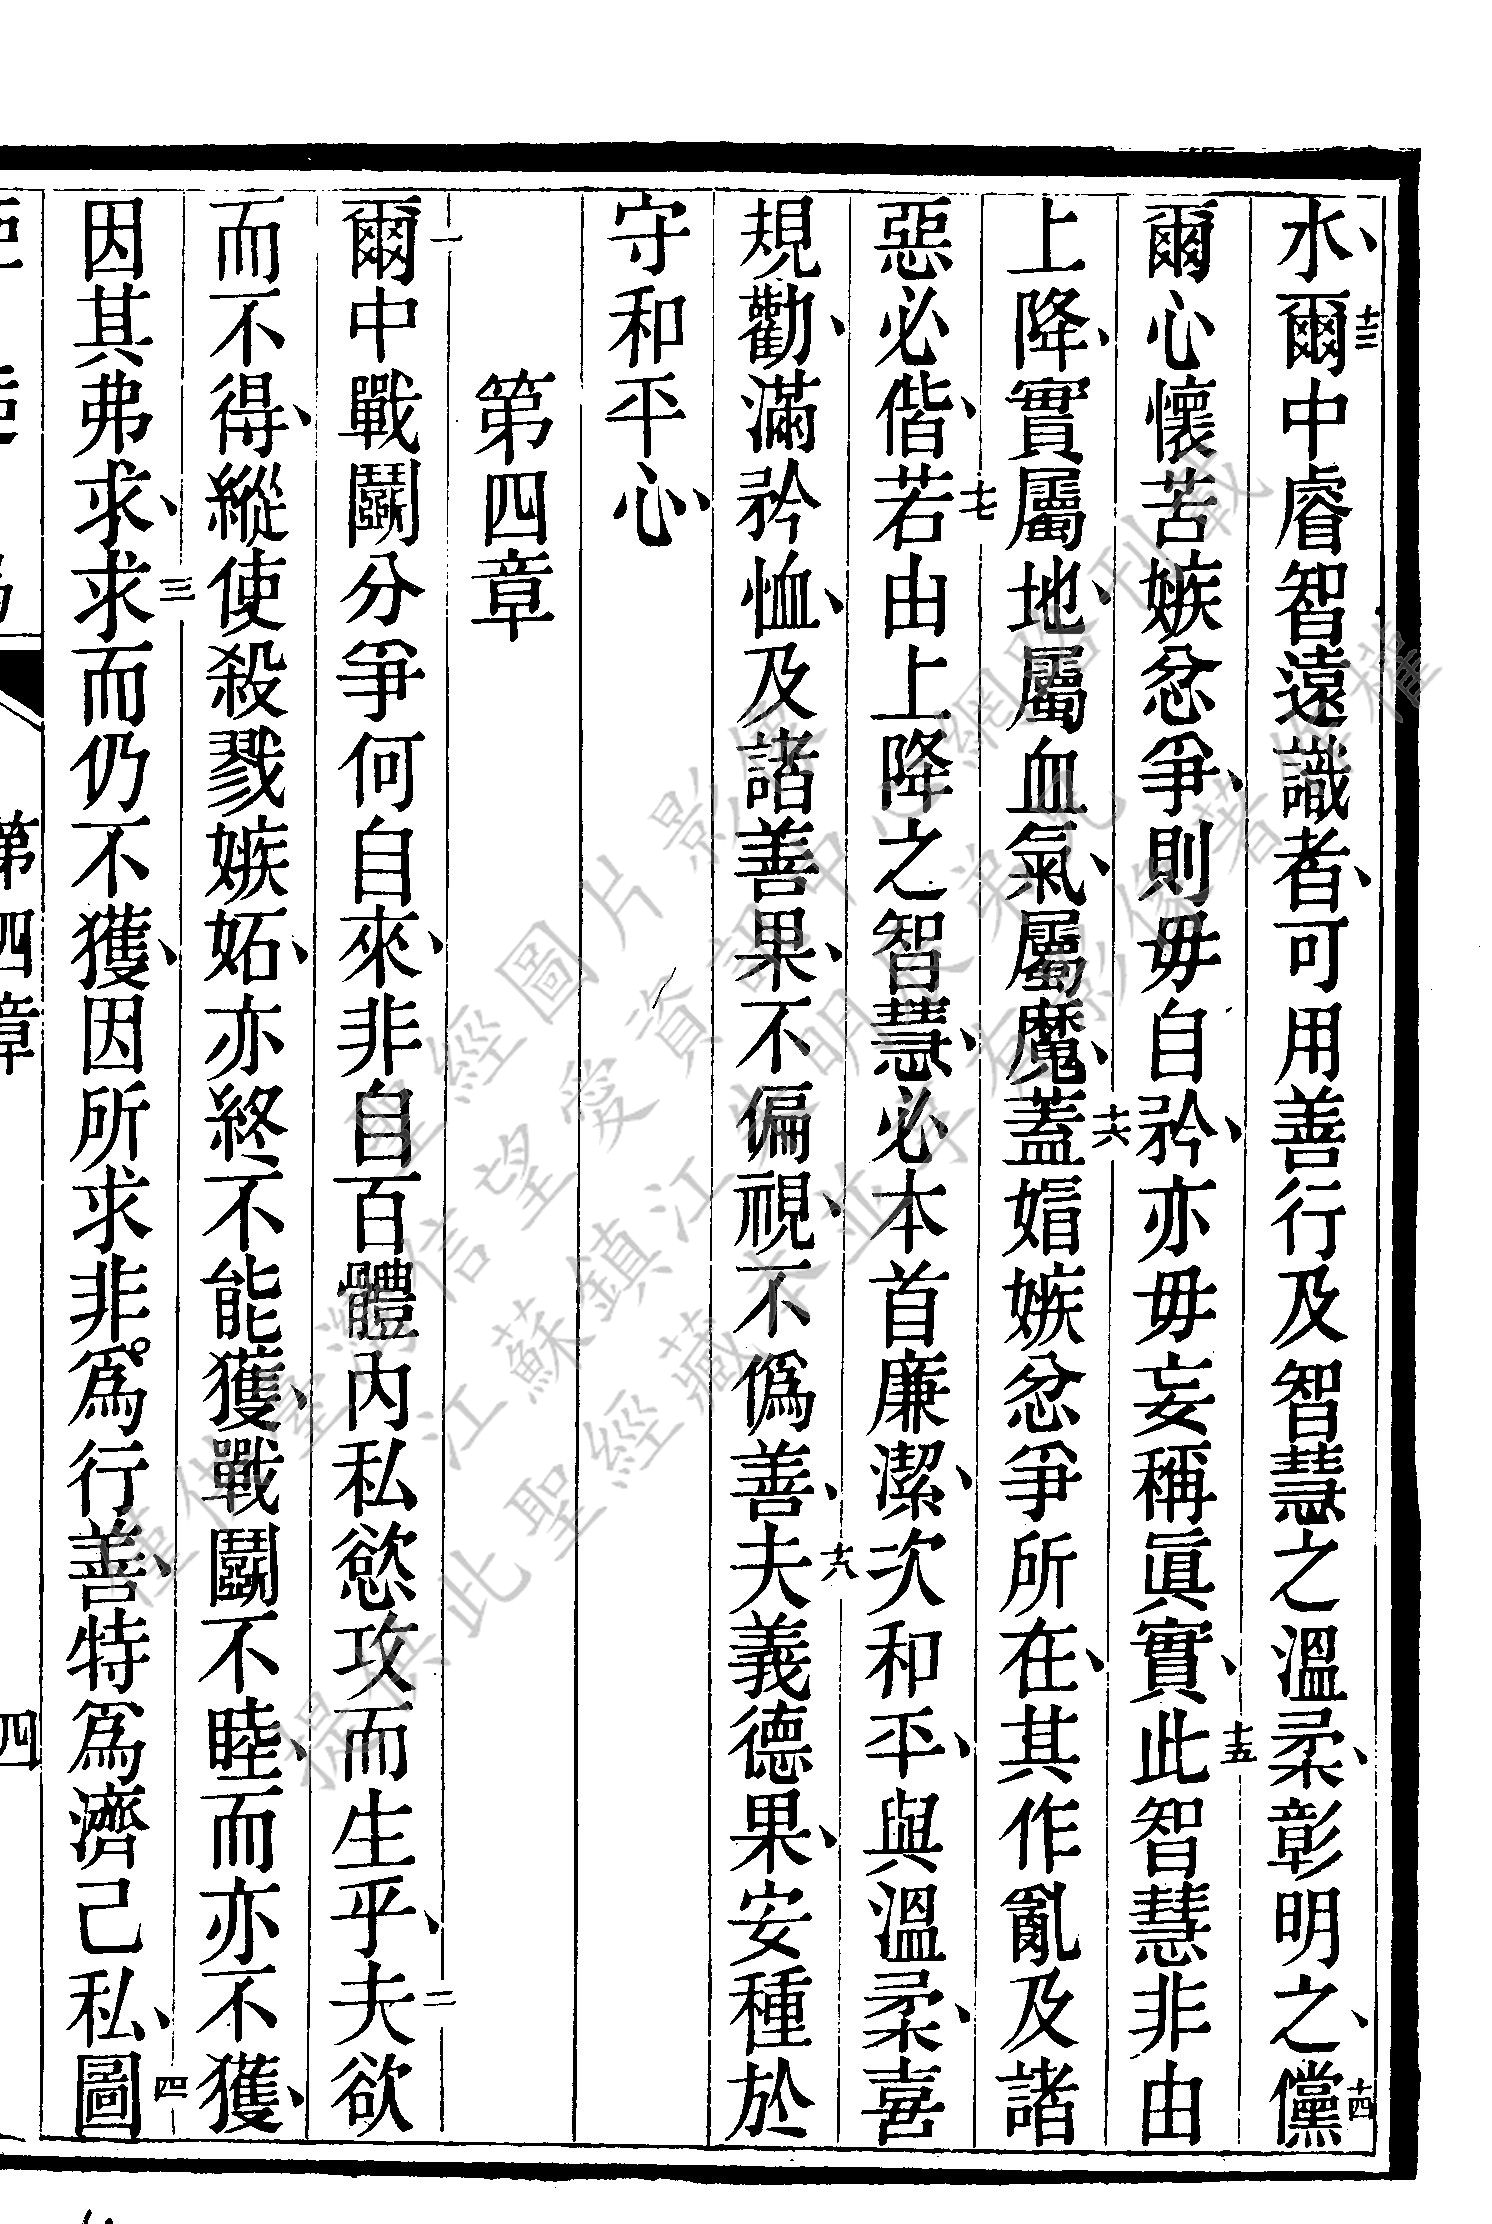 水、十三爾中睿智遠識者、可用善行及智慧之溫柔、彰明之、十四儻
爾心懷苦嫉忿爭、則毋自矜、亦毋妄稱眞實、十五此智慧非由
上降、實屬地、屬血氣、屬魔、十六蓋媢嫉忿爭所在、其作亂及諸
惡必偕、十七若由上降之智慧、必本首廉潔、次和平、與溫柔、喜
規勸、滿矜恤、及諸善果、不偏視、不僞善、十八夫義德果、安種於
守和平心、
第四章
一爾中戰鬬分爭何自來、非自百體內私慾攻而生乎、二夫欲
而不得、縱使殺戮嫉妬、亦終不能獲、戰鬬不睦、而亦不獲、
因其弗求、三求而仍不獲、因所求非。爲行善、特爲濟己私、四圖
第四章
四